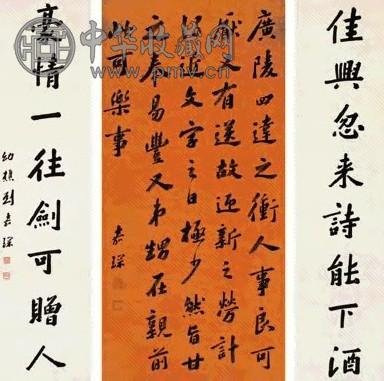 中华收藏网
www.pmv.cn
佳興忽来詩能下酒
廣陵四達之衝人事良可
厭又有送故迎新之勞計
得近文字之日極少然旨甘
之奉易豐又弟甥在親前
此可樂事
嘉琛
豪情一往劍可贈人
幼樵劉嘉琛